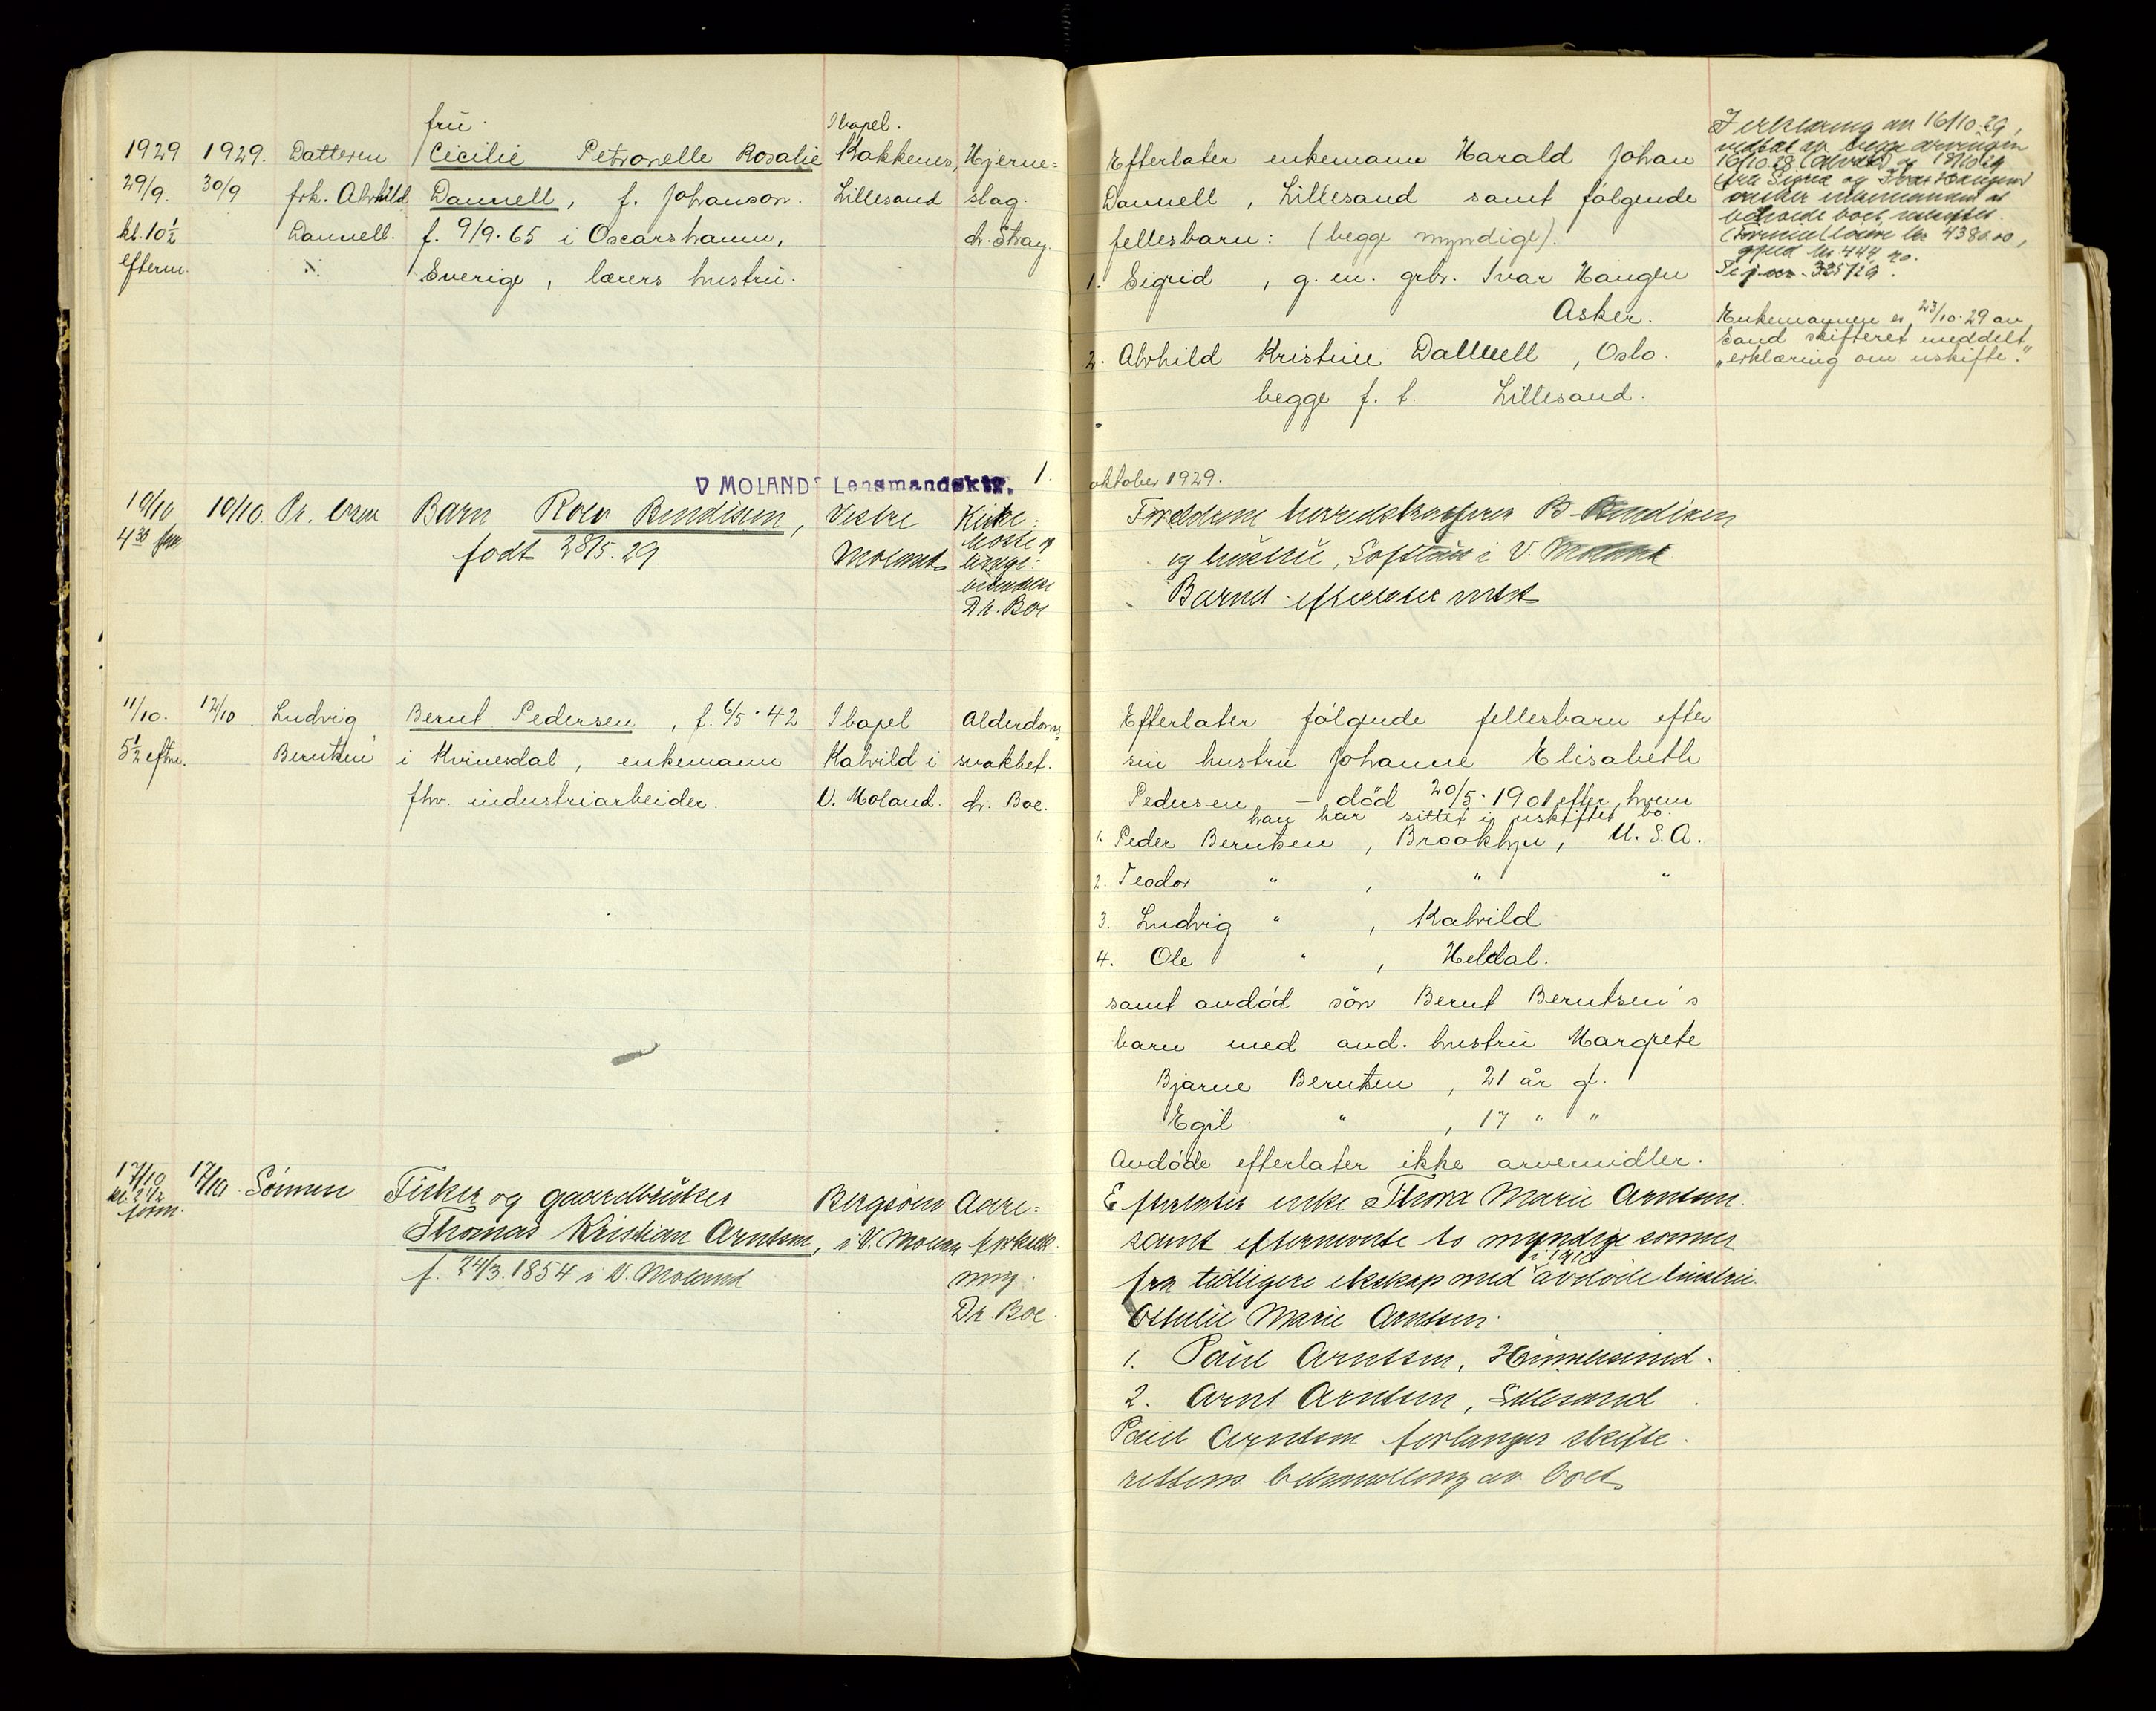 1929 29/9. kl. 10½ efterm.
1929. 30/9
Datteren
frk. Alvhild
Dannell.
frü
Cicilie Petronelle Rosalie
Dannell, f. Johanson.
f. 9/9. 65 i Oscarshamn,
Sverige, lærers hustrü.
Ibapel.
Kokkenes,
Lillesand
Hjerne=
slag.
dr. Stray.
Efterlater enkemann Harald Johan
Dannell, Lillesand samt følgende
fellesbarn: (begge myndige).
1. Sigrid , g. m. grbr. Ivar Haugen
Asker.
2. Alvhild Kristine Dannell, Oslo.
begge f. i Lillesand.
I erklæring av 16/10.29,
vedtat av begge arvingene
16/10.29 (Alvhild) og 18/10.29
(fru Sigrid og Ivar Haugen)
ønsker enkemannen at
beholde boet uskiftet.
kr 4380.00,
gjeld kr. 444,40.
325/29.
Enkemannen er 23/10.29 av
Sand skifteret meddelt
"erklæring om uskifte."
V MOLAND Lensmandsktr. 1. oktober 1929.
10/10
4 30 fm
10/10.
Barn Rolv Bendiksen,
født 28/5. 29
Vestre
Moland
Kik=
hoste og
lunge=
Dr. Boe
Foreldrene herredskasserer B. Bendiksen
og hüstrü, i V. Moland
Barnet efterlater intet
11/10.
5½ eftm.
12/10.
Ludvig
Berntsen
Bernt Pedersen, f. 6/5. 42
i Kvinesdal, enkemann
fhv. industriarbeider.
Ibapel
Kalvild i
V. Moland.
Alderdoms=
svakhet.
dr. Boe.
Efterlater følgende fellesbarn efter
sin hustrü Johanne Elisabeth
Pedersen - død 20/5. 1901 efter hvem
han har sittet i uskiftet bo.
1. Peder Berntsen, Brooklyn, U. S. A.
2. Teodor " , " "
3. Ludvig " , Kalvild
4. Ole " , Heldal.
samt avdød søn Bernt Berntsen's
barn med avd. hustrü Margrete
Bjarne Berntsen, 21 år gl.
Egil " , 17 " "
Avdøde efterlater ikke arvemidler.
17/10
kl. 2½
form.
17/10.
Sønnen
Fisker og gaardbrüker
Thomas Kristian Arntsen,
f. 24/3. 1854 i V. Moland
Bergsøen
i V. Moland
Aare=
forkalk=
ning.
Dr. Boe.
Efterlater enke Thora Marie Arntsen
samt efternevnte to myndige sønner
fra tidligere ekteskap med i 1910 avdøde hüstrü
Othilie Marie Arntsen.
1. Paül Arntsen, Hümlesünd.
2. Arnt Arntsen, Lillesand.
Paül Arntsen forlanger skifte=
rettens behandling av boet.